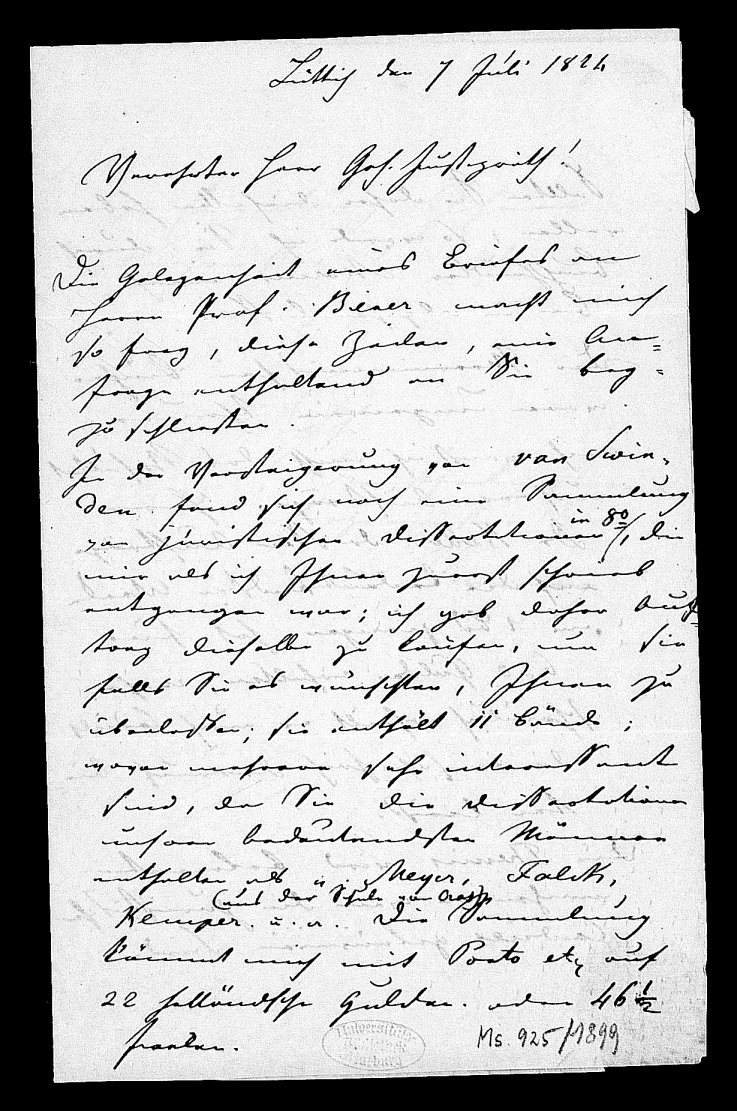 Lüttich den 7 Juli 1824
Verehrter Herr Geh. Justizrath!
Die Gelegenheit eines Briefes an
Herrn Prof. Biener macht mich
so frey, diese Zeilen, eine An=
frage enthaltend an Sie bey=
zuschliessen.
In der Versteigerung von van Swin=
den fand sich noch eine Sammlung
von juristischen Dissertationen in 8o, die
mir als ich Ihnen zuerst schrieb
entgangen war; ich gab daher Auf=
trag dieselbe zu kaufen, um sie
falls Sie es wünschten, Ihnen zu
überlassen; sie enthält 11 Bände;
wovon mehrere sehr interessant
sind, da Sie die Dissertationen
unserer bedeutendsten Männer
enthalten als v. Meyer, Falck,
Kemper (aus der Schule von Cras) u. a. Die Sammlung
kömmt mich mit Porto etc auf
22 holländische Gulden oder 46 1/2
Franken.
Ms. 925/1899
Universitäts
Bibliothek
Marburg